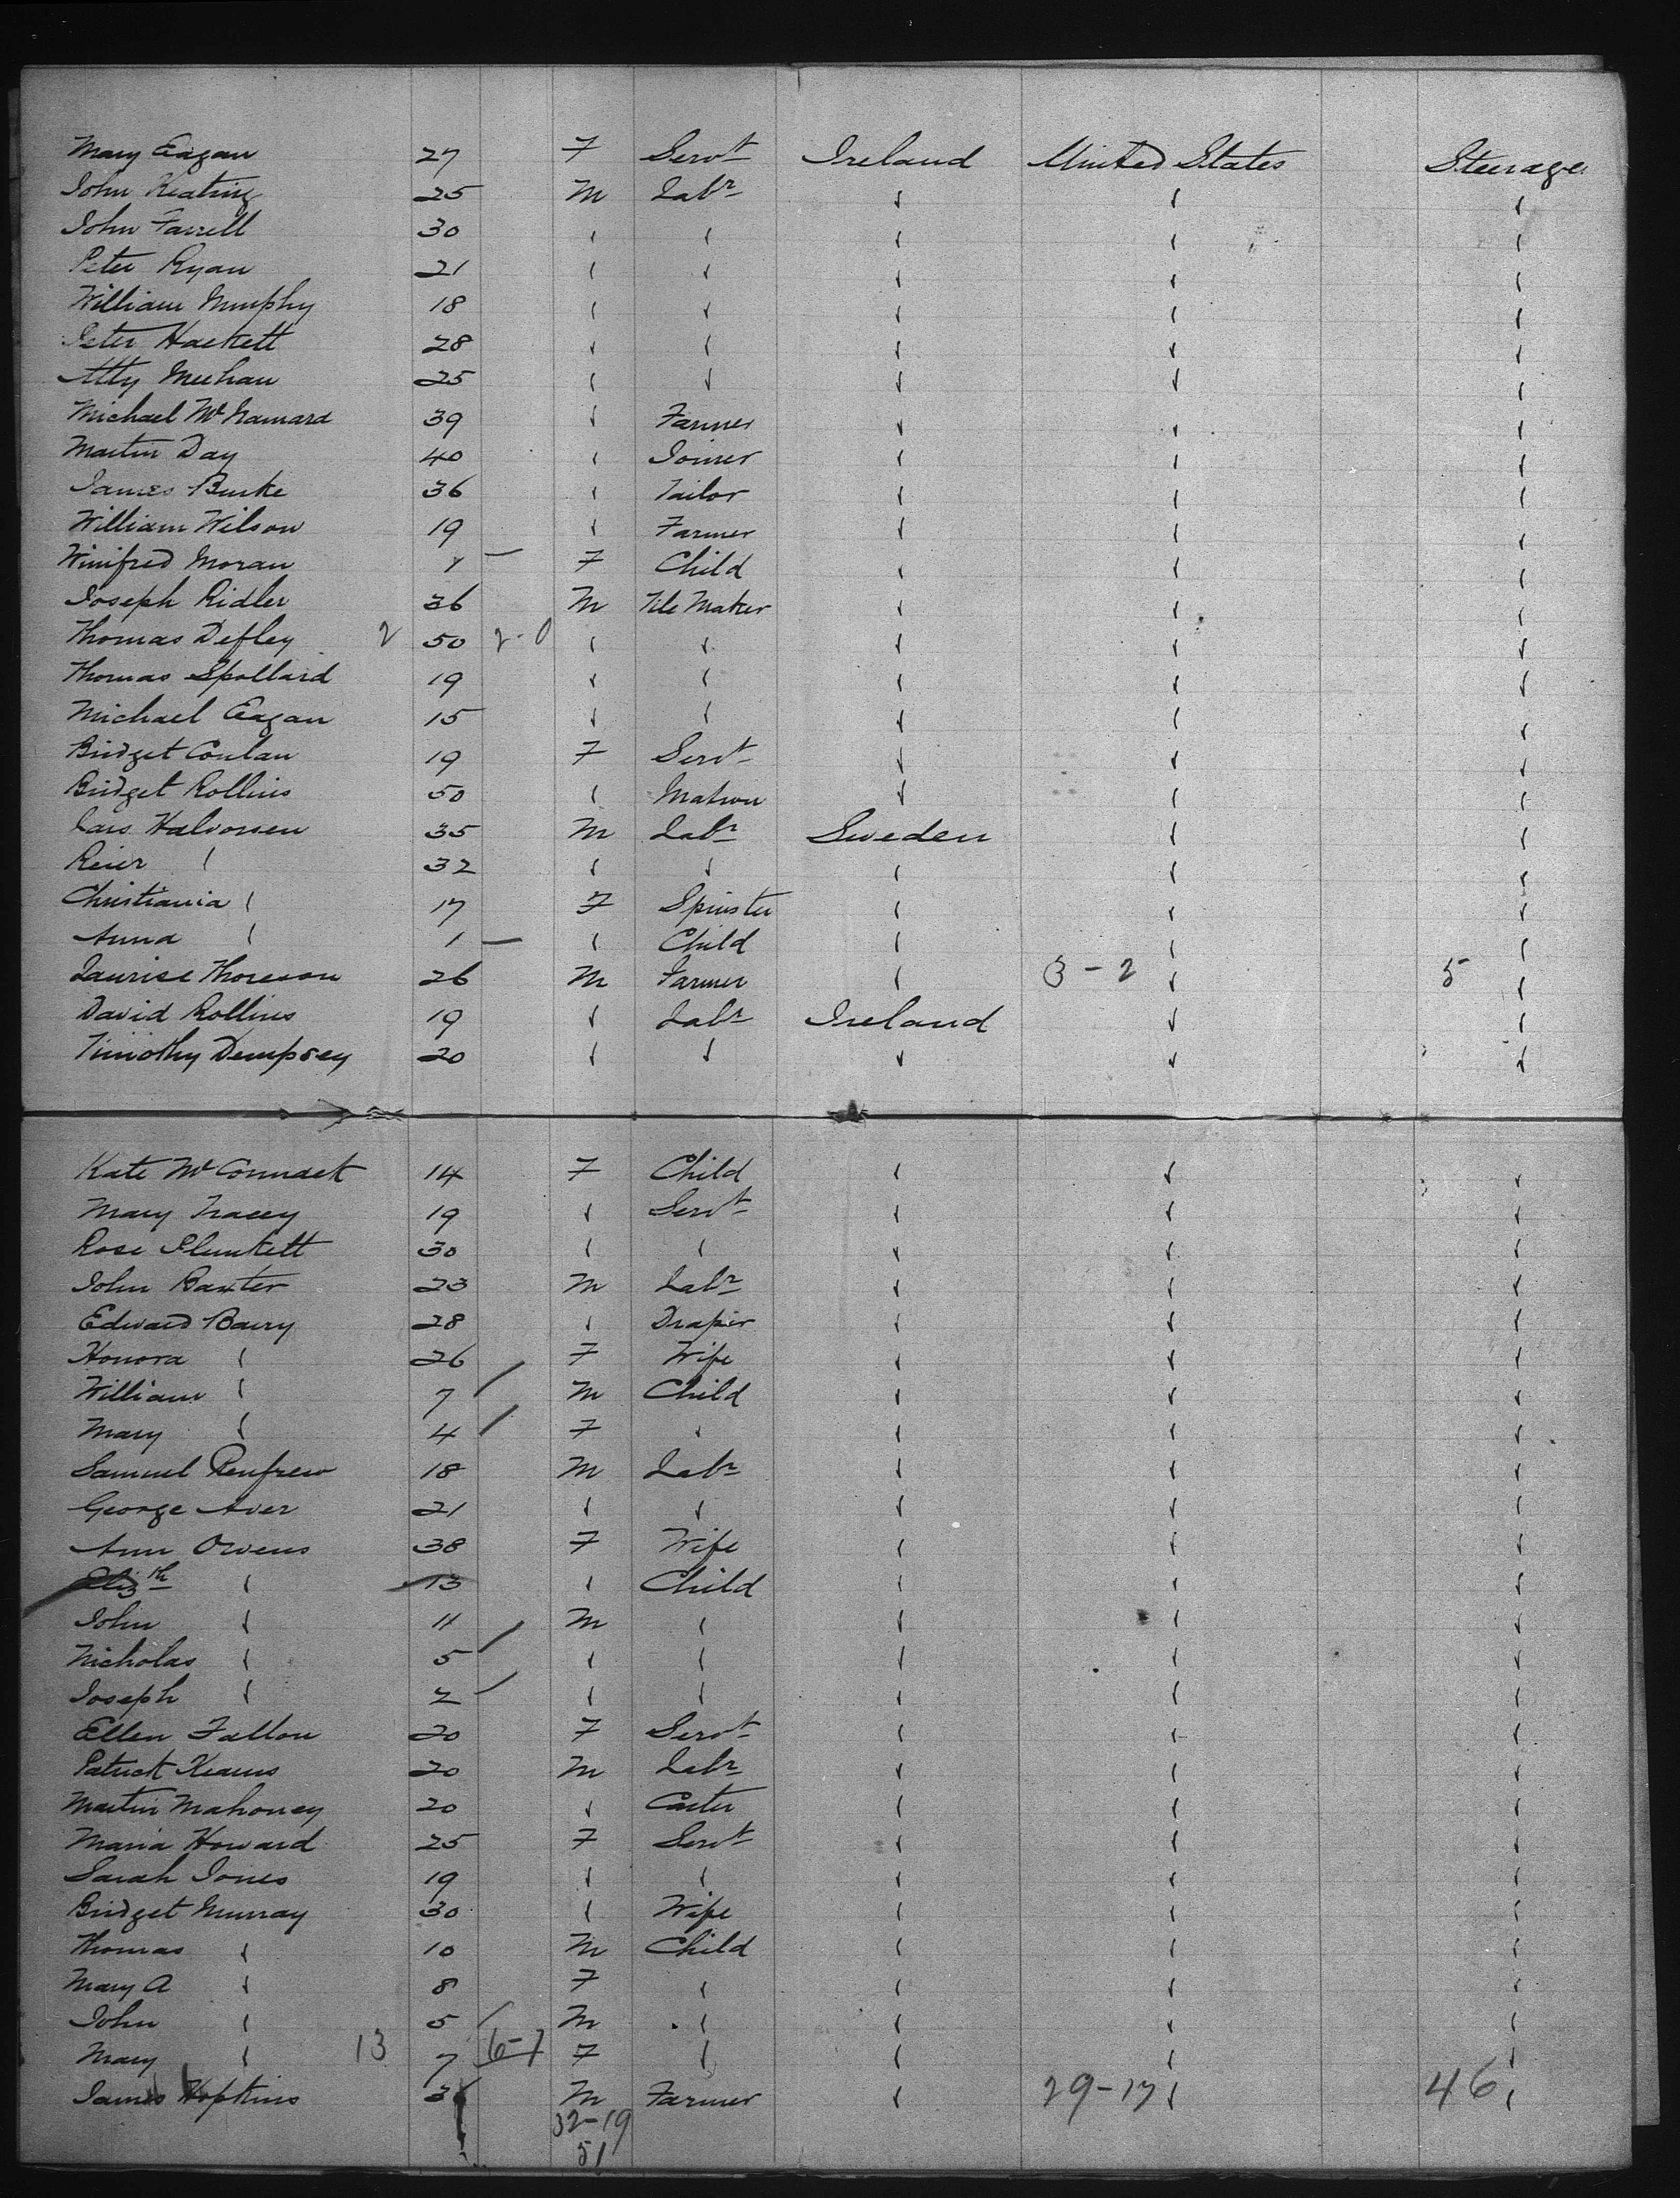 Mary Eagan 27 F Servt Ireland United States Steerage
John Keating 25 M Labr ✓ ✓ ✓
John Farrell 30 ✓ ✓ ✓ ✓ ✓
Peter Ryan 21 ✓ ✓ ✓ ✓ ✓
William Murphy 18 ✓ ✓ ✓ ✓ ✓
Peter Hackett 28 ✓ ✓ ✓ ✓ ✓
Atty Meehan 25 ✓ ✓ ✓ ✓ ✓
Michael McNamara 39 ✓ Farmer ✓ ✓ ✓
Martin Day 40 ✓ Joiner ✓ ✓ ✓
James Burke 36 ✓ Tailor ✓ ✓ ✓
William Wilson 19 ✓ Farmer ✓ ✓ ✓
Winifred Moran — F Child ✓ ✓ ✓
Joseph Ridler 36 M Tile Maker ✓ ✓ ✓
Thomas Defley 2 50 2-0 ✓ ✓ ✓ ✓ ✓
Thomas Spollard 19 ✓ ✓ ✓ ✓ ✓
Michael Eagan 15 ✓ ✓ ✓ ✓ ✓
Bridget Conlan 19 F Servt ✓ ✓ ✓
Bridget Rollins 50 ✓ Matron ✓ ✓ ✓
Lars Halvorsen 35 M Labr Sweden ✓ ✓
Reier ✓ 32 ✓ ✓ ✓ ✓ ✓
Christiania ✓ 17 F Spinster ✓ ✓ ✓
Anna ✓ 1 — ✓ Child ✓ ✓ ✓
Laurise Thoreson 26 M Farmer ✓ 3-2 ✓ 5 ✓
David Rollins 19 ✓ Labr Ireland ✓ ✓
Timothy Dempsey 20 ✓ ✓ ✓ ✓ ✓
Kate McCormack 14 F Child ✓ ✓ ✓
Mary Tracey 19 ✓ Servt ✓ ✓ ✓
Rose Plunkett 30 ✓ ✓ ✓ ✓ ✓
John Baxter 23 M Labr ✓ ✓ ✓
Edward Barry 28 ✓ Draper ✓ ✓ ✓
Honora ✓ 26 F Wife ✓ ✓ ✓
William ✓ 7 / M Child ✓ ✓ ✓
Mary ✓ 4 / F ✓ ✓ ✓ ✓
Samuel Renfrew 18 M Labr ✓ ✓ ✓
George Aver 21 ✓ ✓ ✓ ✓ ✓
Ann Owens 38 F Wife ✓ ✓ ✓
Elizth ✓ 13 ✓ Child ✓ ✓ ✓
John ✓ 11 M ✓ ✓ ✓ ✓
Nicholas ✓ 5 / ✓ ✓ ✓ ✓ ✓
Joseph ✓ 2 / ✓ ✓ ✓ ✓ ✓
Ellen Fallon 20 F Servt ✓ ✓ ✓
Patrick Kearns 20 M Labr ✓ ✓ ✓
Martin Mahoney 20 ✓ Carter ✓ ✓ ✓
Maria Howard 25 F Servt ✓ ✓ ✓
Sarah Jones 19 ✓ ✓ ✓ ✓ ✓
Bridget Murray 30 ✓ Wife ✓ ✓ ✓
Thomas ✓ 10 M Child ✓ ✓ ✓
Mary A ✓ 8 F ✓ ✓ ✓ ✓
John ✓ 5 / M ✓ ✓ ✓ ✓
Mary ✓ 13 7 6-7 F ✓ ✓ ✓ ✓
James Hopkins M Farmer ✓ 29-17 ✓ 46 ✓
32-19
51